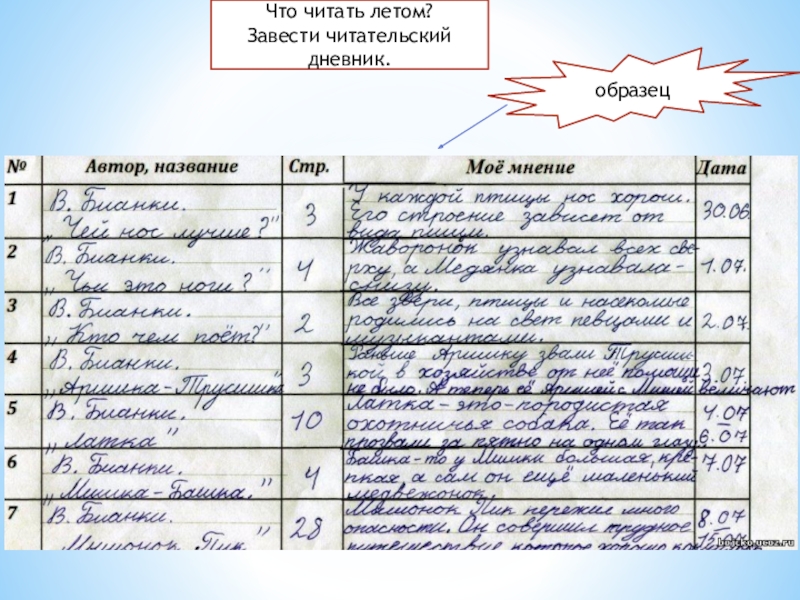 Что читать летом?
Завести читательский
дневник.
образец
№ Автор, название Стр. Моё мнение Дата
1 В. Бианки. 3 У каждой птицы нос хорош. 30.06
„Чей нос лучше?" Его строение зависет от
вида пищи.
2 В. Бианки. 4 Жаворонок узнавал всех све- 1.07.
„Чьи это ноги?" рху, а Медянка узнавала-
снизу.
3 В. Бианки. 2 Все звери, птицы и насекомые 2.07.
„Кто чем поёт?" родились на свет певцами и
музыкантами.
4 В. Бианки. 3 Раньше Аришку звали Трусиш- 3.07.
„Аришка-Трусишка" кой, в хозяйстве от неё помощи
не было. А теперь её Аришей с Мишей величают
5 В. Бианки. 10 Латка-это-породистая 4.07
„Латка" охотничья собака. Её так 6.07
прозвали за пятно на одном глазу
6 В. Бианки. 4 Башка-то у Мишки большая, кре- 7.07
„Мишка-Башка." пкая, а сам он ещё маленький
медвежонок.
7 В. Бианки. 28 Мышонок Пик пережил много 8.07
„Мышонок Пик" опасности. Он совершил трудное
путешествие которое хорошо